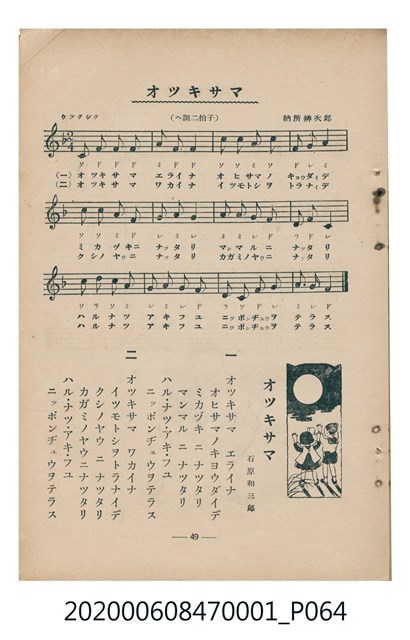 オツキサマ
ウツクシク
(ヘ調二拍子)
納所辨次郎
ソ ド ド ド ミ ド ド ソ ソ ミ ソ ド レ ミ
(一)オ ツキ サ マ エ ラ イ ナ オ ヒ サ マ ノ キョウ ダ イ デ
(二)オ ツキ サ マ ワ カ イ ナ イ ツ モ ト シ ヲ ト ラ ナ イ デ
ミ カ ヅ キ ニ ナ ツ タ リ マン マ ル ニ ナ ツ タ リ
ク シ ノ ヤ ウ ニ ナ ツ タ リ カ ガ ミ ノ ヤ ウ ニ ナ ツ タ リ
ハ ル ナ ツ ア キ フ ユ ニッ ポン ヂュウ ヲ テ ラ ス
ハ ル ナ ツ ア キ フ ユ ニッ ポン ヂュウ ヲ テ ラ ス
オツキサマ
石原和三郎
一
オツキサマ エライナ
オヒサマノキヨウダイデ
ミカヅキ ニ ナツタリ
マンマル ニ ナツタリ
ハル・ナツ・アキ・フユ
ニッポンヂュウヲテラス
二
オツキサマ ワカイナ
イツモトシヲトラナイデ
クシノヤウ ニ ナツタリ
カガミノヤウ ニ ナツタリ
ハル・ナツ・アキ・フユ
ニッポンヂュウヲテラス
— 49 —
202000608470001_P064